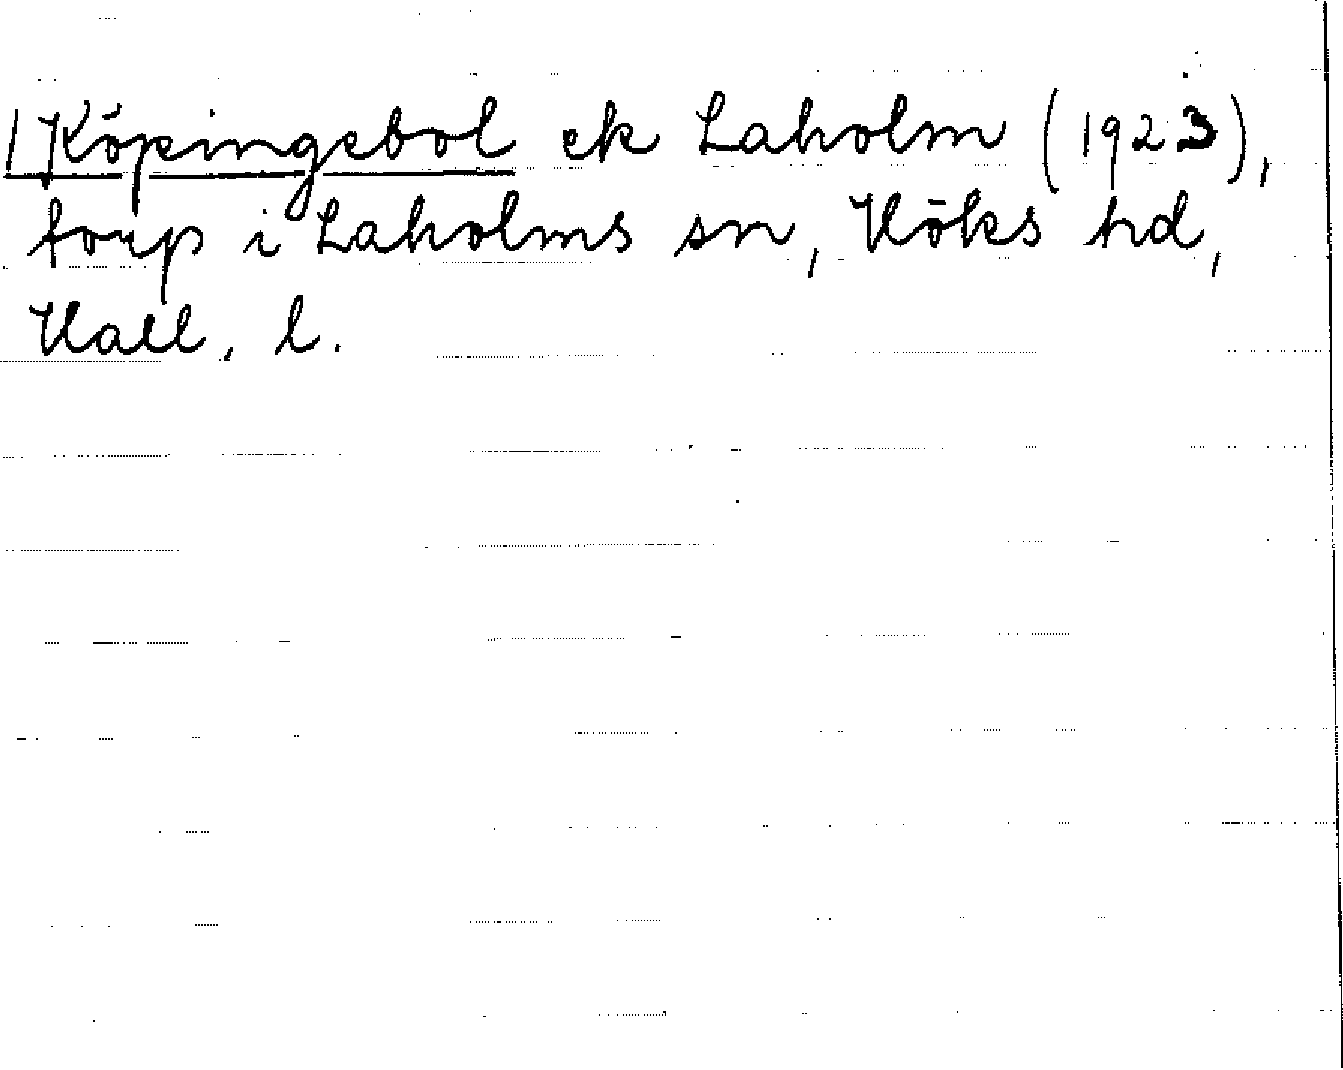 /Köpingebol ek Laholm (1923),
torp i Laholms sn, Höks hd,
Hall. l.